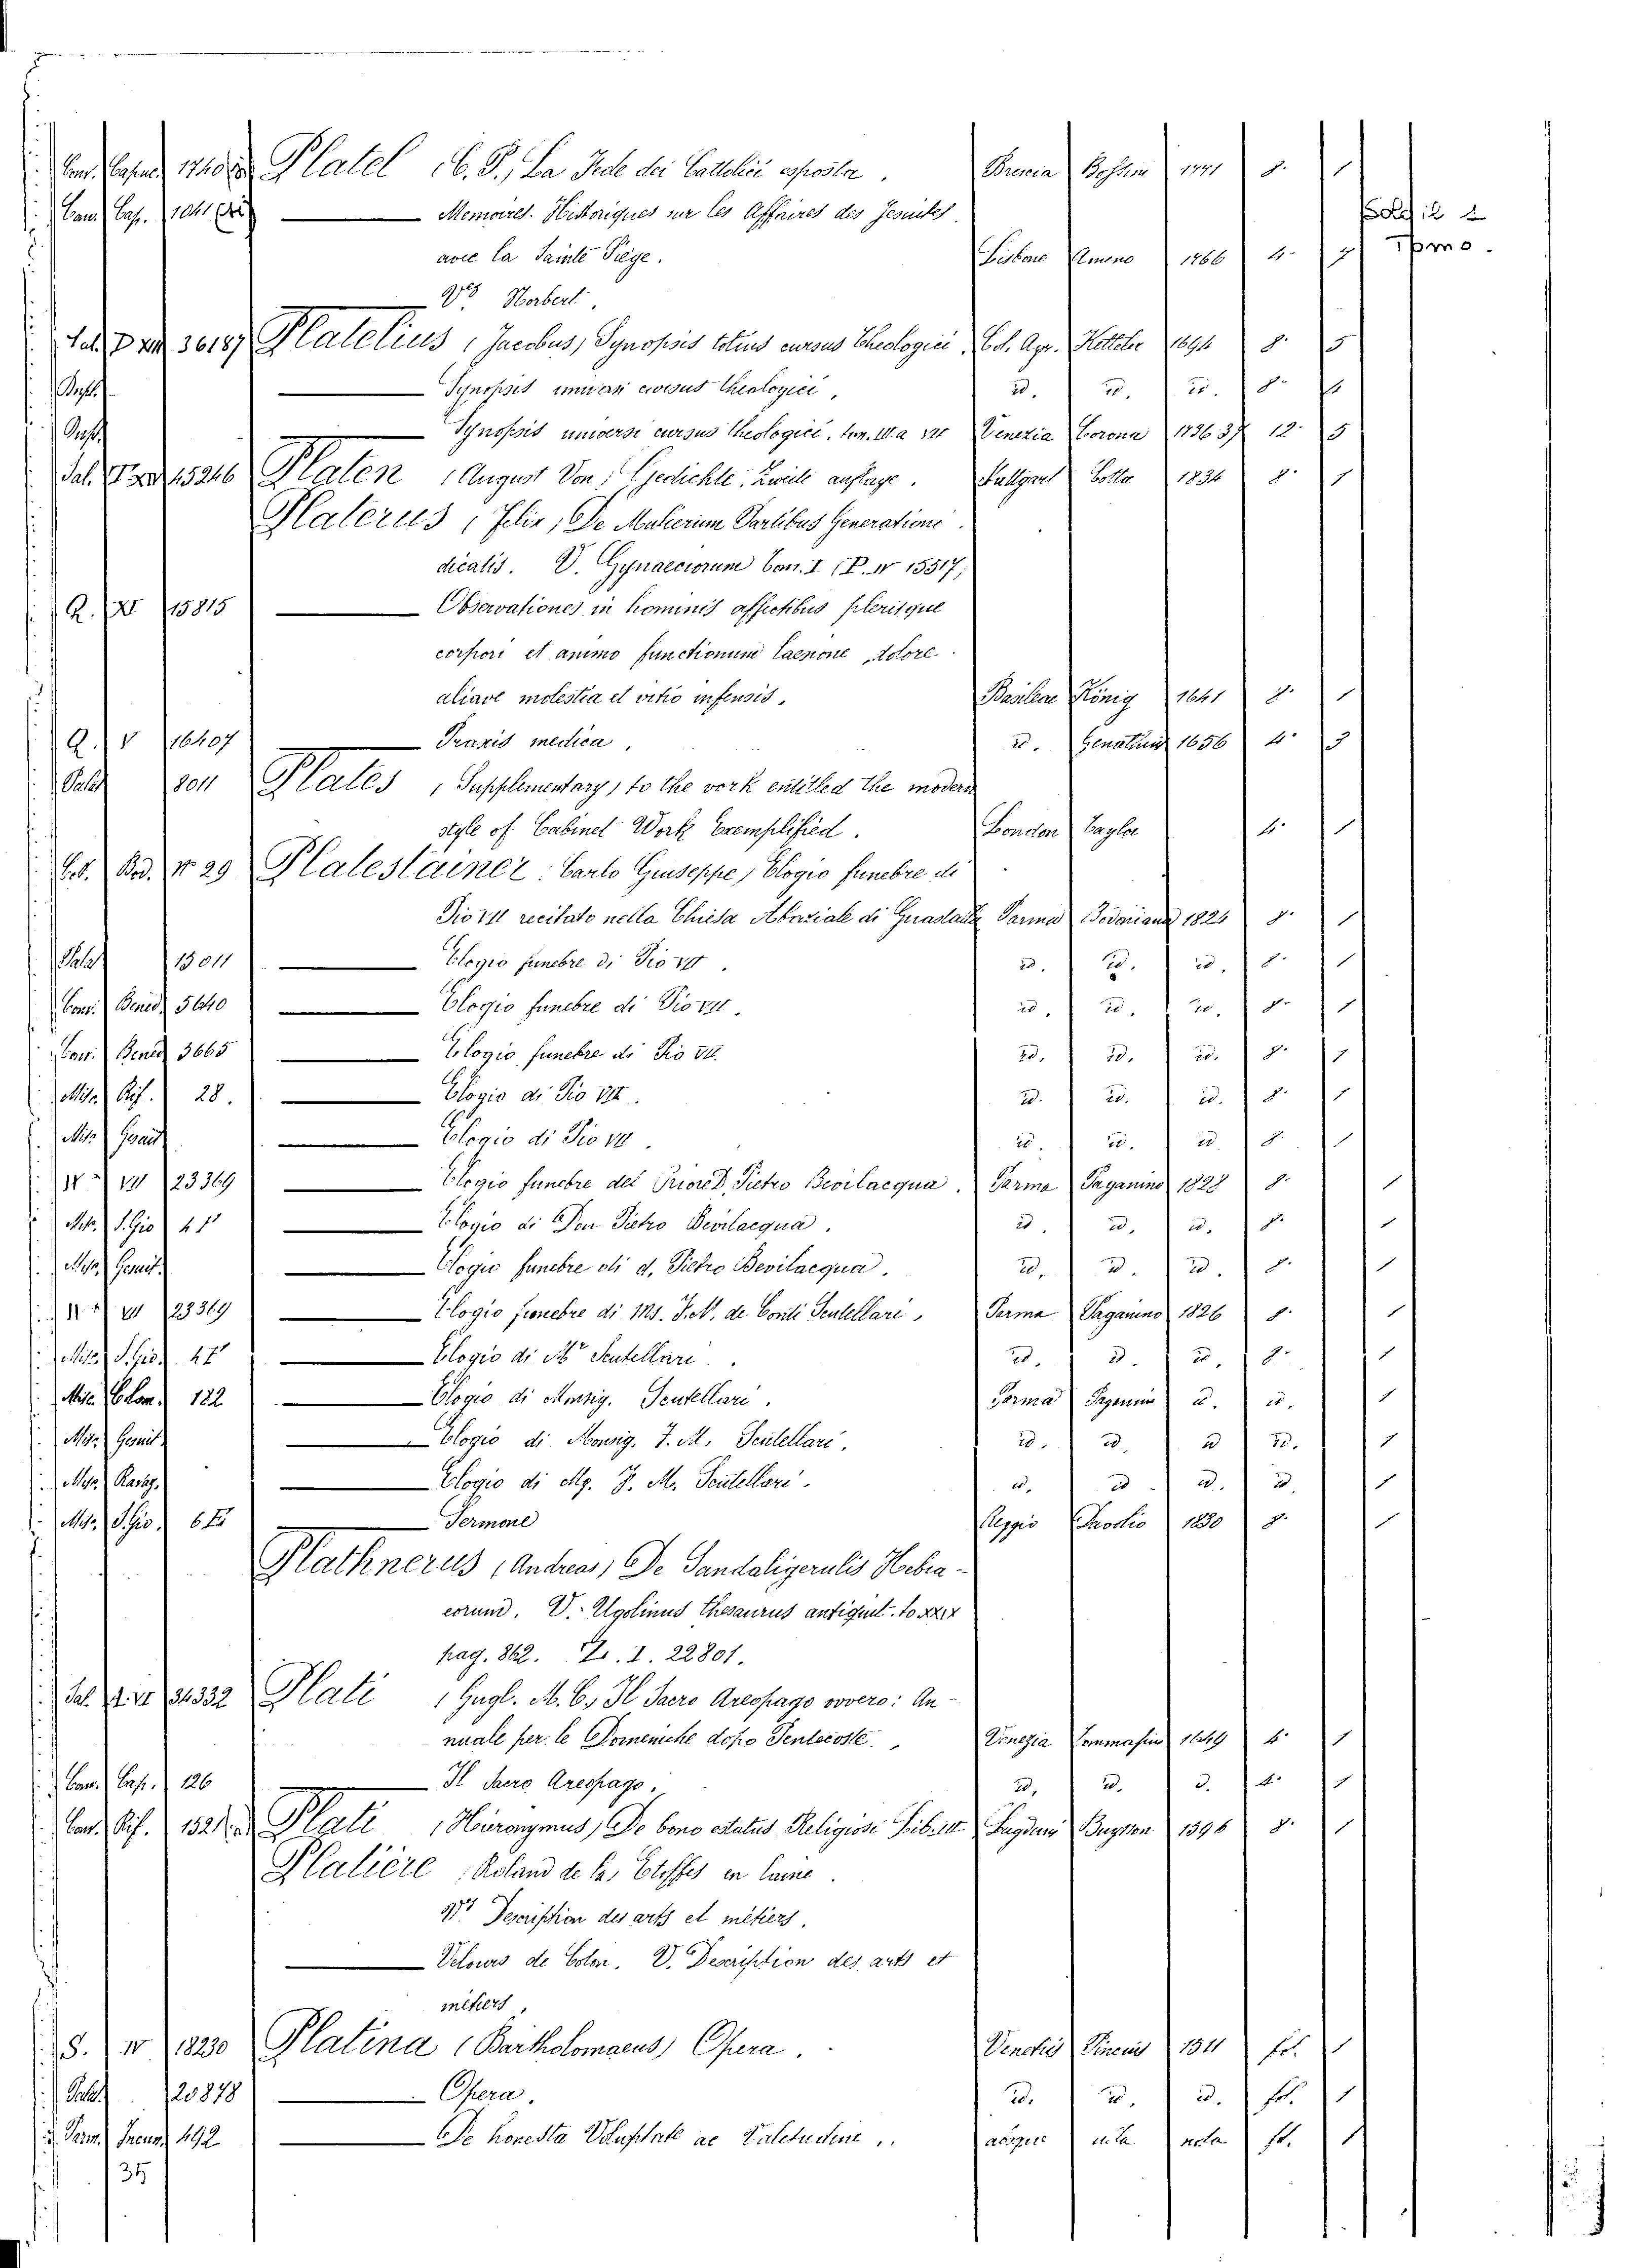 Platel C. P., La Fede dei Cattolici esposta. Brescia Bossini 1741 8. 1
Can. Cap. 1041 Memoires Historiques sur les Affaires des Jesuites Solo il 2
avec la Sainte Siège. Lisbone Ameno 1766 4. 7 Tomo.
V. Norbert.
36187 Platelius, Jacobus, Synopsis totius cursus Theologici, Col. Agr. Ketteler 1694 8. 5
Synopsis universi cursus Theologici, id. id. id. 8.
Synopsis universi cursus Theologici, tom. Venezia Corona 1736 37 12. 5
Sal. 15246 Platen, August Von, Gedichte. Zweite auflage. Stuttgart Cotta 1834 8. 1
Platerus, Felix, De Mulierum Partibus Generatione
dicatis. V. Gynaeciorum tom. I (P. IV 15517)
Q. XI 15815 Observationes in hominis affectibus plerisque
corpori et animo functionum laesione, dolore
aliave molestia et vitio infensis. Basileae König 1641 8. 1
Q. V 16407 Praxis medica. id. Genathus 1656 4. 3
Palat 8011 Plates, Supplementary, to the work entitled the modern
style of Cabinet Work Exemplified. London Taylor 4. 1
Bod. N° 29 Platestainer Carlo Giuseppe, Elogio funebre di
Pio VII recitato nella Chiesa Abaziale di Guastalla Parma Bodoniana 1824 8. 1
Palat 15011 Elogio funebre di Pio VII. id. id. id. 8. 1
Conv. Bened. 5640 Elogio funebre di Pio VII. id. id. id. 8. 1
Conv. Bened. 3665 Elogio funebre di Pio VII. id. id. id. 8. 1
Misc. Rif. 28. Elogio di Pio VII. id. id. id. 8. 1
Misc. Gesuit. Elogio di Pio VII. id. id. id. 8. 1
VII 23369 Elogio funebre del Priore D. Pietro Bevilacqua. Parma Paganino 1828 8. 1
Misc. S. Gio. 41 Elogio di Don Pietro Bevilacqua. id. id. id. 8. 1
Misc. Gesuit. Elogio funebre di d. Pietro Bevilacqua. id. id. id. 8. 1
VII 23369 Elogio funebre di Ms. F. M. de Conti Scutellari, Parma Paganino 1826 8. 1
Misc. S. Gio. 47 Elogio di Mr Scutellari. id. id. id. 8. 1
Misc. Colom. 122 Elogio di Monsig. Scutellari. Parma Paganino id. id. 1
Misc. Gesuit. Elogio di Monsig. F. M. Scutellari. id. id. id. id. 1
Misc. Elogio di Mg. F. M. Scutellari. id. id. id. id. 1
Misc. S. Gio. Sermone Reggio 1830 8. 1
Plathnerus (Andreas) De Sandaligerulis Hebra-
eorum. V. Ugolinus Thesaurus antiquit. to XXIX
pag. 862. I. 22801.
Sal. 34332 Plati, Gugl. M. C., Il Sacro Areopago ovvero: An-
nuale per le Domeniche dopo Pentecoste. Venezia Tommasini 1649 4. 1
Can. Cap. 126 Il Sacro Areopago. id. id. id. 4. 1
Plati, Hieronymus, De bono status Religiosi Lib. III Lugduni Buysson 8. 1
Platière, Roland de la, Etoffes en laine.
V. Description des arts et métiers.
Velours de Coton. V. Description des arts et
métiers,
S. IV 18230 Platina (Bartholomaeus) Opera. Venetiis Pincius 1511 fol. 1
Palat. 20878 Opera. id. id. id. fol. 1
Parm. Incun. 492 De honesta Voluptate ac Valetudine. absque ulla nota fol. 1
35